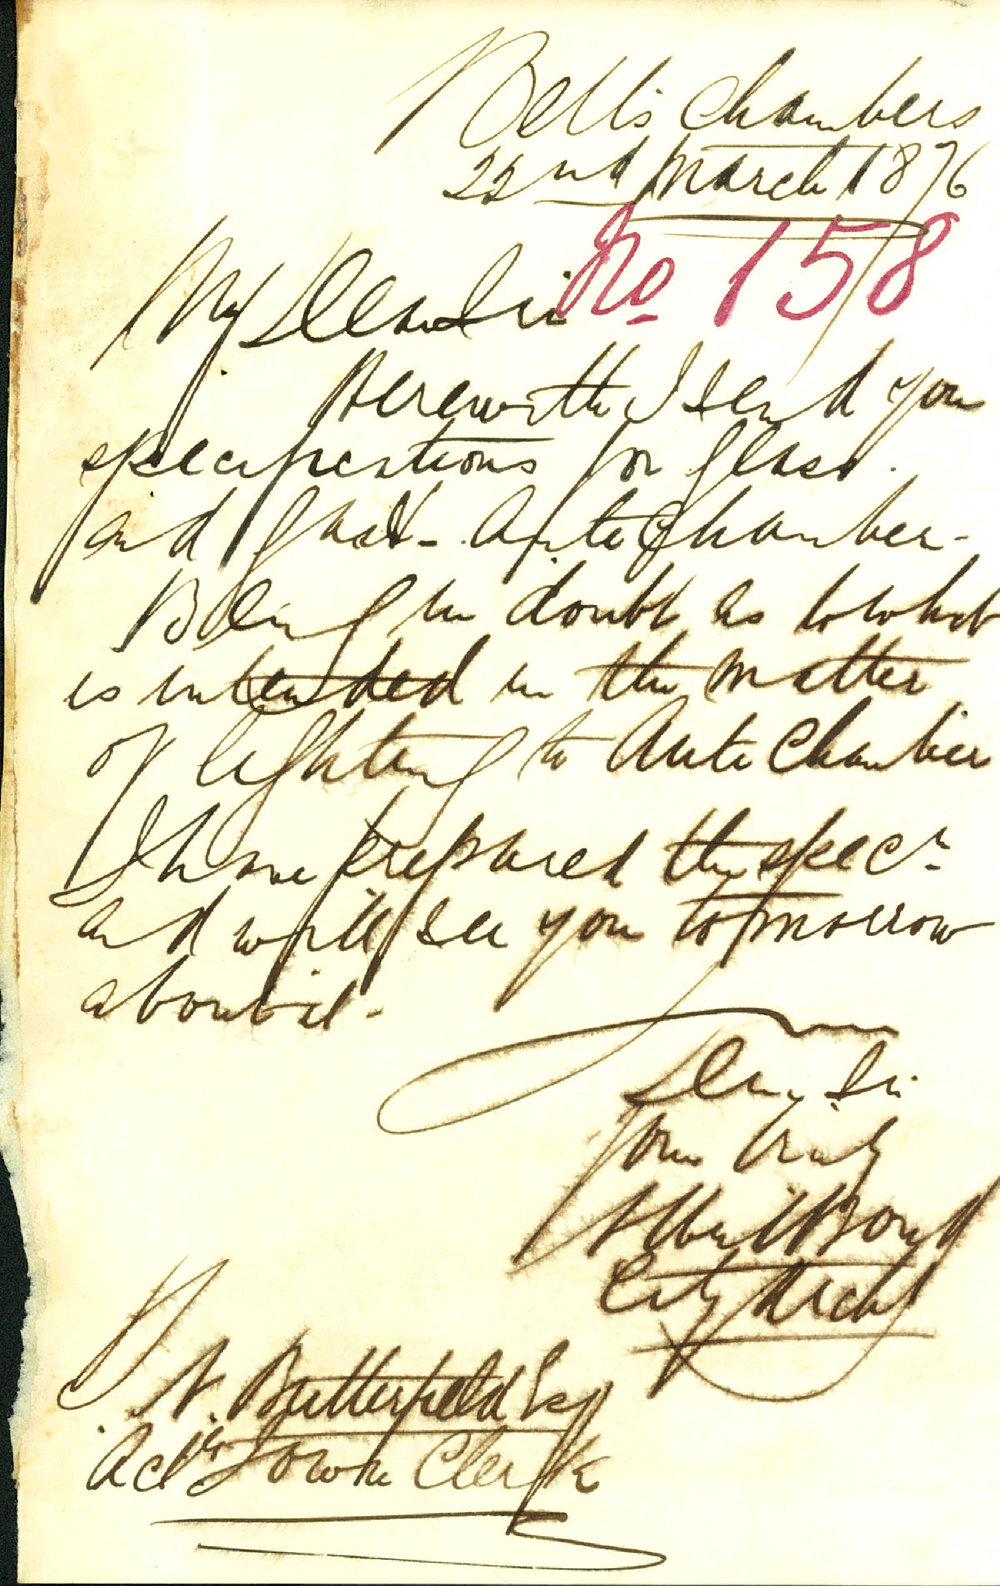 Bell's Chambers
22nd March 1876
No 158
My Dear Sir
Herewith I send you
specifications for Glass.
and Gas - Ante Chamber -
Being in doubt as to what
is intended in the matter
of lighting to Ante Chamber
I have prepared the specn
and will see you tomorrow
about it -
Dear Sir
Yours truly
Albert Bond
City Archt
N. Butterfield Esq
Actg Town Clerk